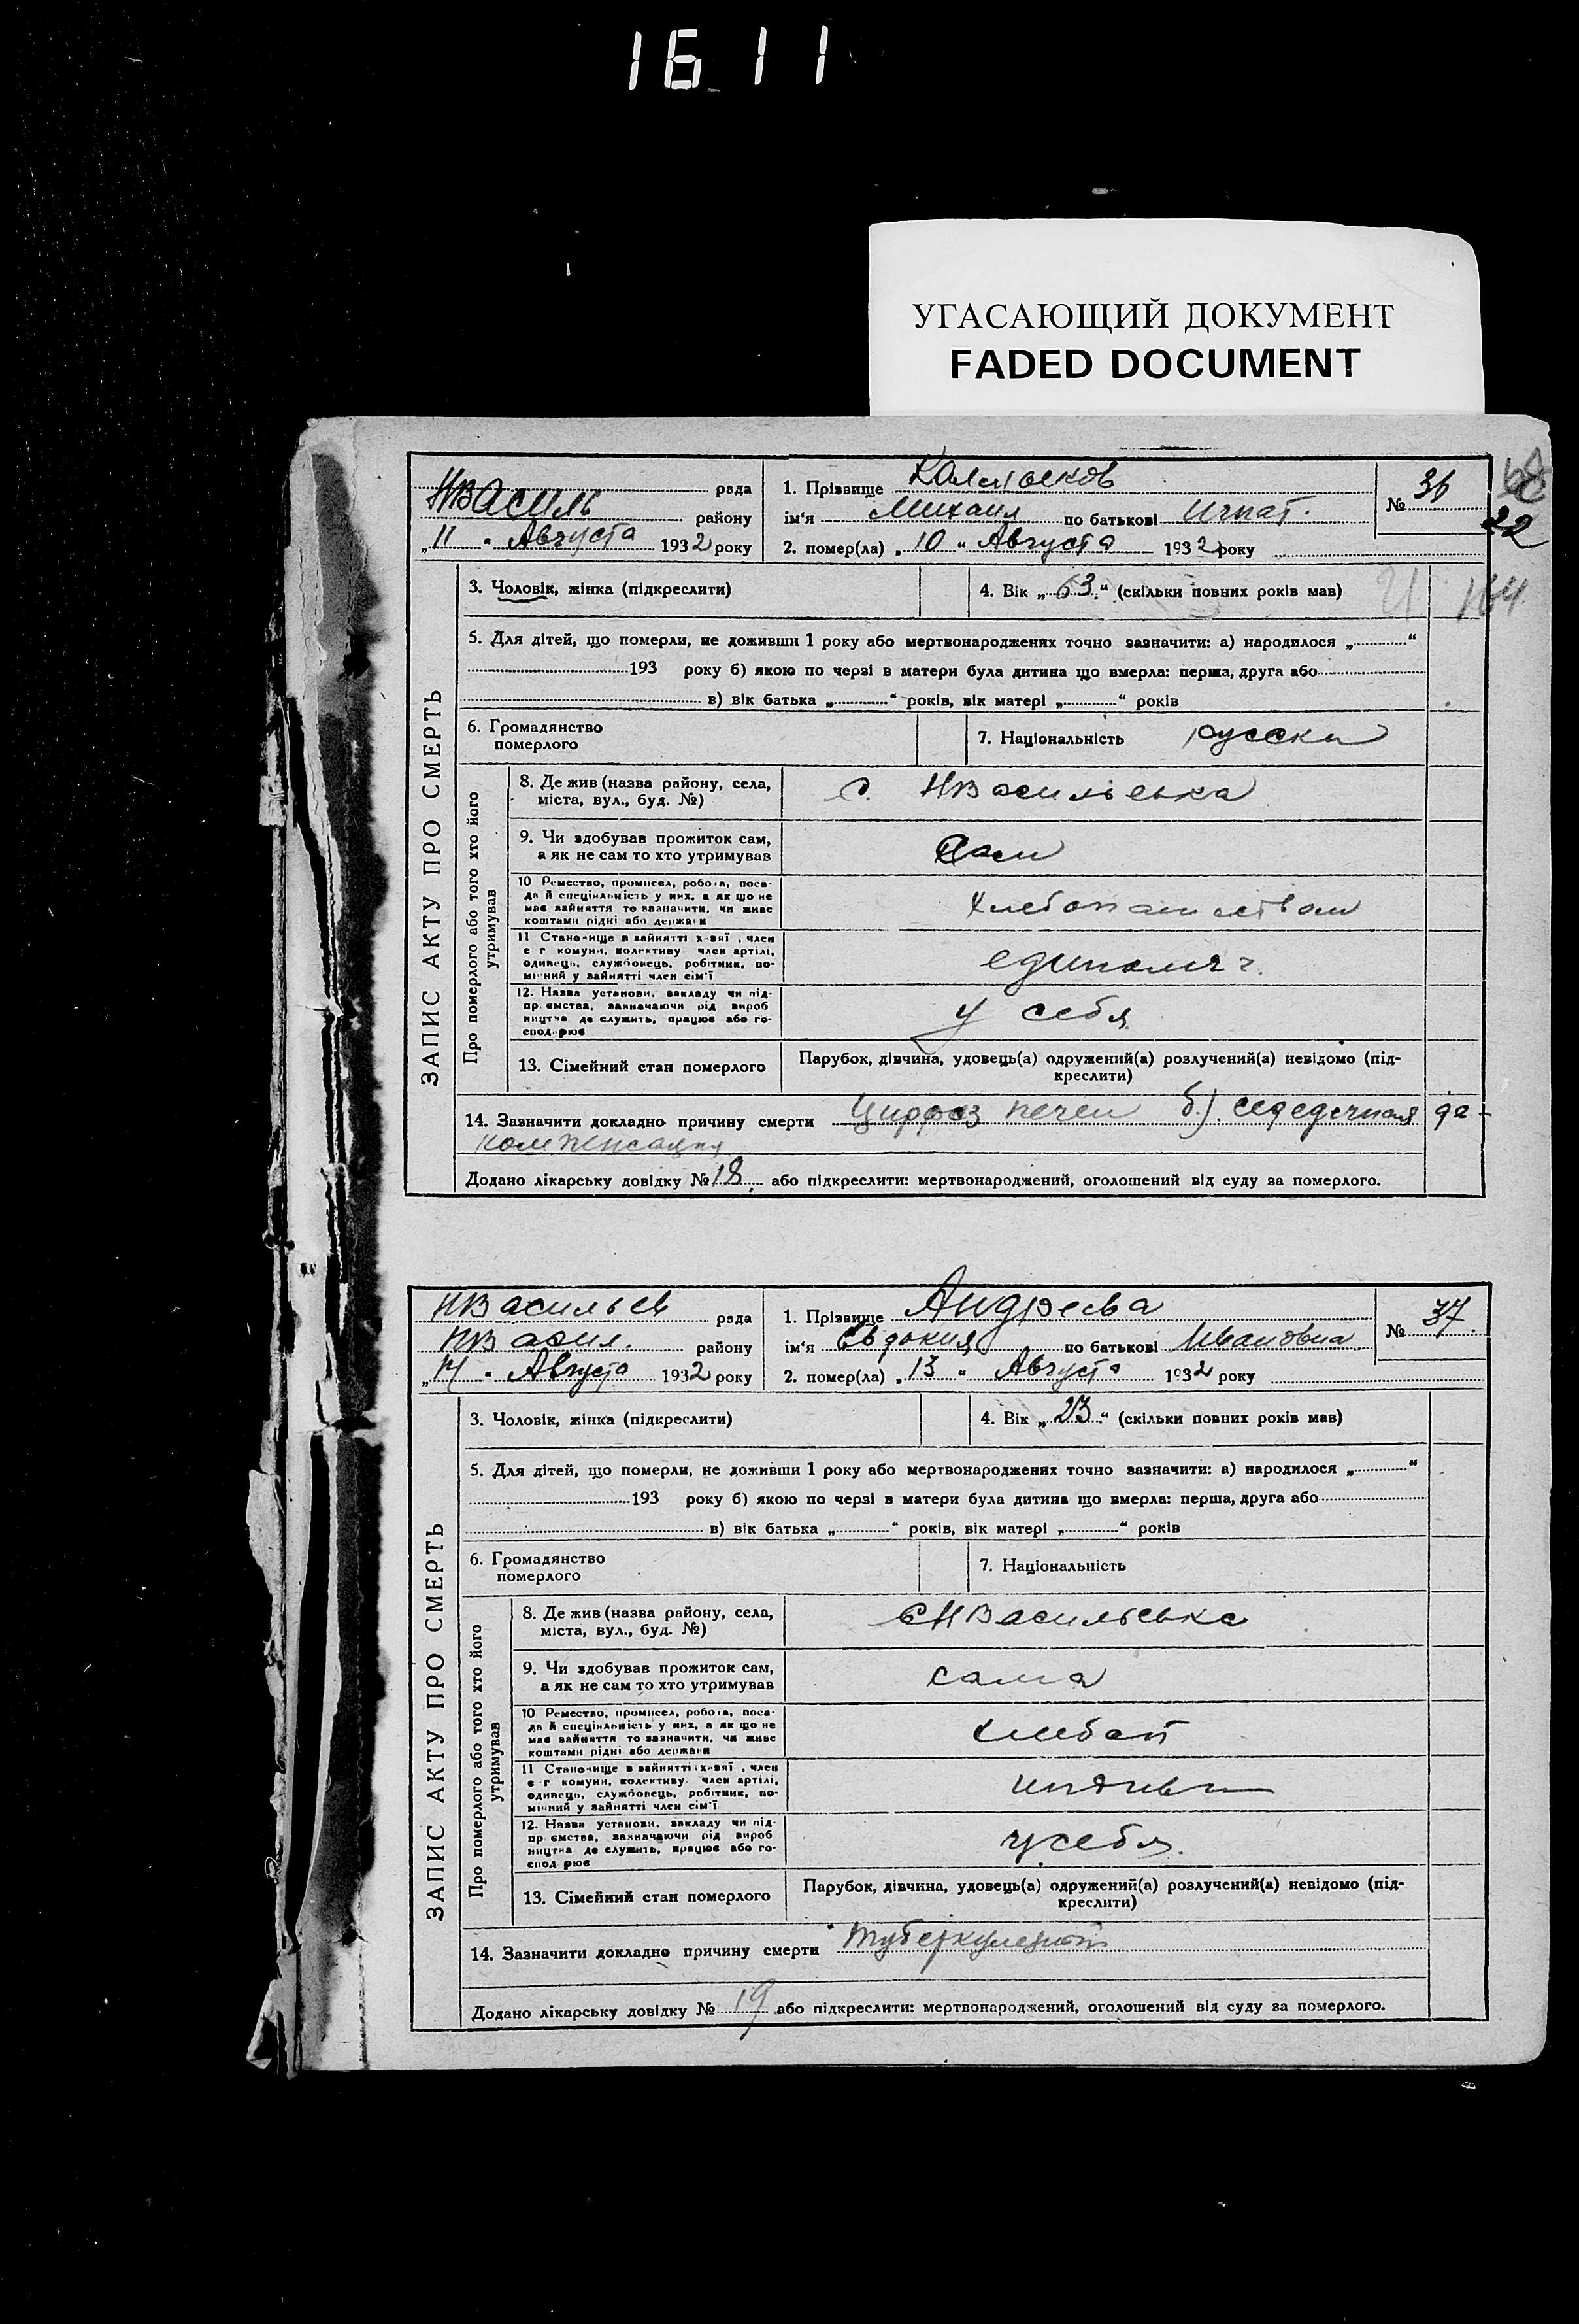 1611
УГАСАЮЩИЙ ДОКУМЕНТ
FADED DOCUMENT
рада
НВасиль району
„11“ Августа 1932 року
1. Прізвище
ім'я Михаил по батькові Игнат.
2. помер(ла) „10“ Августа 1932 року
№ 36
22
164
ЗАПИС АКТУ ПРО СМЕРТЬ
3. Чоловік, жінка (підкреслити)
4. Вік „63“ (скільки повних років мав)
5. Для дітей, що померли, не доживши 1 року або мертвонароджених точно зазначити: а) народилося „ “
193 року б) якою по черзі в матери була дитина що вмерла: перша, друга або
в) вік батька „ “ років, вік матері „ “ років
6. Громадянство
померлого
7. Національність русски
Про померлого або того хто його
утримував
8. Де жив (назва району, села,
міста, вул., буд. №)
с. НВасильевка
9. Чи здобував прожиток сам,
а як не сам то хто утримував
Сам
10 Ремество, промисел, робота, поса-
да й спеціяльність у них, а як що не
має зайняття то зазначити, чи живе
коштами рідні або держави
11 Становище в зайнятті х-вяї, член
с г комуни, колективу член артілі,
одинець, службовець, робітник, по-
мічний у зайнятті член сім'ї
единолич.
12. Назва установи, закладу чи під-
пр ємства, зазначаючи рід вироб
ництва де служить, працює або го-
спод рює
у себя
13. Сімейний стан померлого
Парубок, дівчина, удовець(а) одружений(а) розлучений(а) невідомо (під-
креслити)
14. Зазначити докладно причину смерти Цирроз печени б). сердечная де-
компенсация
Додано лікарську довідку № 18. або підкреслити: мертвонароджений, оголошений від суду за померлого.
НВасильев рада
НВасил. району
„14“ Августа 1932 року
1. Прізвище Андреева
ім'я Евдокия по батькові Ивановна
2. помер(ла) „13“ Августа 1932 року
№ 37.
ЗАПИС АКТУ ПРО СМЕРТЬ
3. Чоловік, жінка (підкреслити)
4. Вік „23“ (скільки повних років мав)
5. Для дітей, що померли, не доживши 1 року або мертвонароджених точно зазначити: а) народилося „ “
193 року б) якою по черзі в матери була дитина що вмерла: перша, друга або
в) вік батька „ “ років, вік матері „ “ років
6. Громадянство
померлого
7. Національність
Про померлого або того хто його
утримував
8. Де жив (назва району, села,
міста, вул., буд. №)
с НВасильевка
9. Чи здобував прожиток сам,
а як не сам то хто утримував
сама
10 Ремество, промисел, робота, поса-
да й спеціяльність у них, а як що не
має зайняття то зазначити, чи живе
коштами рідні або держави
хлебоп
11 Становище в зайнятті х-вяї, член
с г комуни, колективу член артілі,
одинець, службовець, робітник, по-
мічний у зайнятті член сім'ї
12. Назва установи, закладу чи під-
пр ємства, зазначаючи рід вироб
ництва де служить, працює або го-
спод рює
у себя.
13. Сімейний стан померлого
Парубок, дівчина, удовець(а) одружений(а) розлучений(а) невідомо (під-
креслити)
14. Зазначити докладно причину смерти
Додано лікарську довідку № 19 або підкреслити: мертвонароджений, оголошений від суду за померлого.